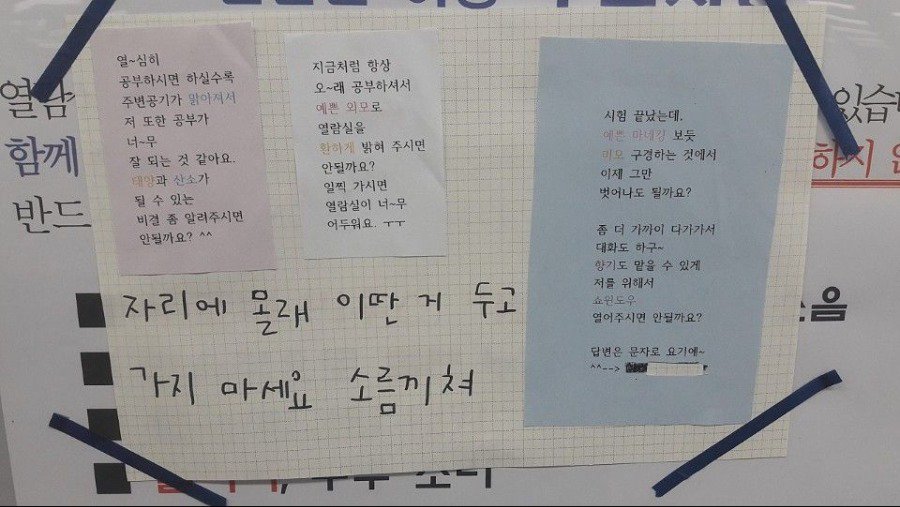 열~심히
공부하시면 하실수록
주변공기가 맑아져서
저 또한 공부가
너~무
잘 되는 것 같아요.
태양과 산소가
될 수 있는
비결 좀 알려주시면
안될까요? ^^
지금처럼 항상
오~래 공부하셔서
예쁜 외모로
열람실을
환하게 밝혀 주시면
안될까요?
일찍 가시면
열람실이 너~무
어두워요. ㅜㅜ
시험 끝났는데.
예쁜 마네킹 보듯
미모 구경하는 것에서
이제 그만
벗어나도 될까요?
좀 더 가까이 다가가서
대화도 하구~
향기도 맡을 수 있게
저를 위해서
쇼윈도우
열어주시면 안될까요?
답변은 문자로 요기에~
^^-->
자리에 몰래 이딴 거 두고
가지 마세요 소름끼쳐
열람
있습
함께
하시
반드
소음
소리